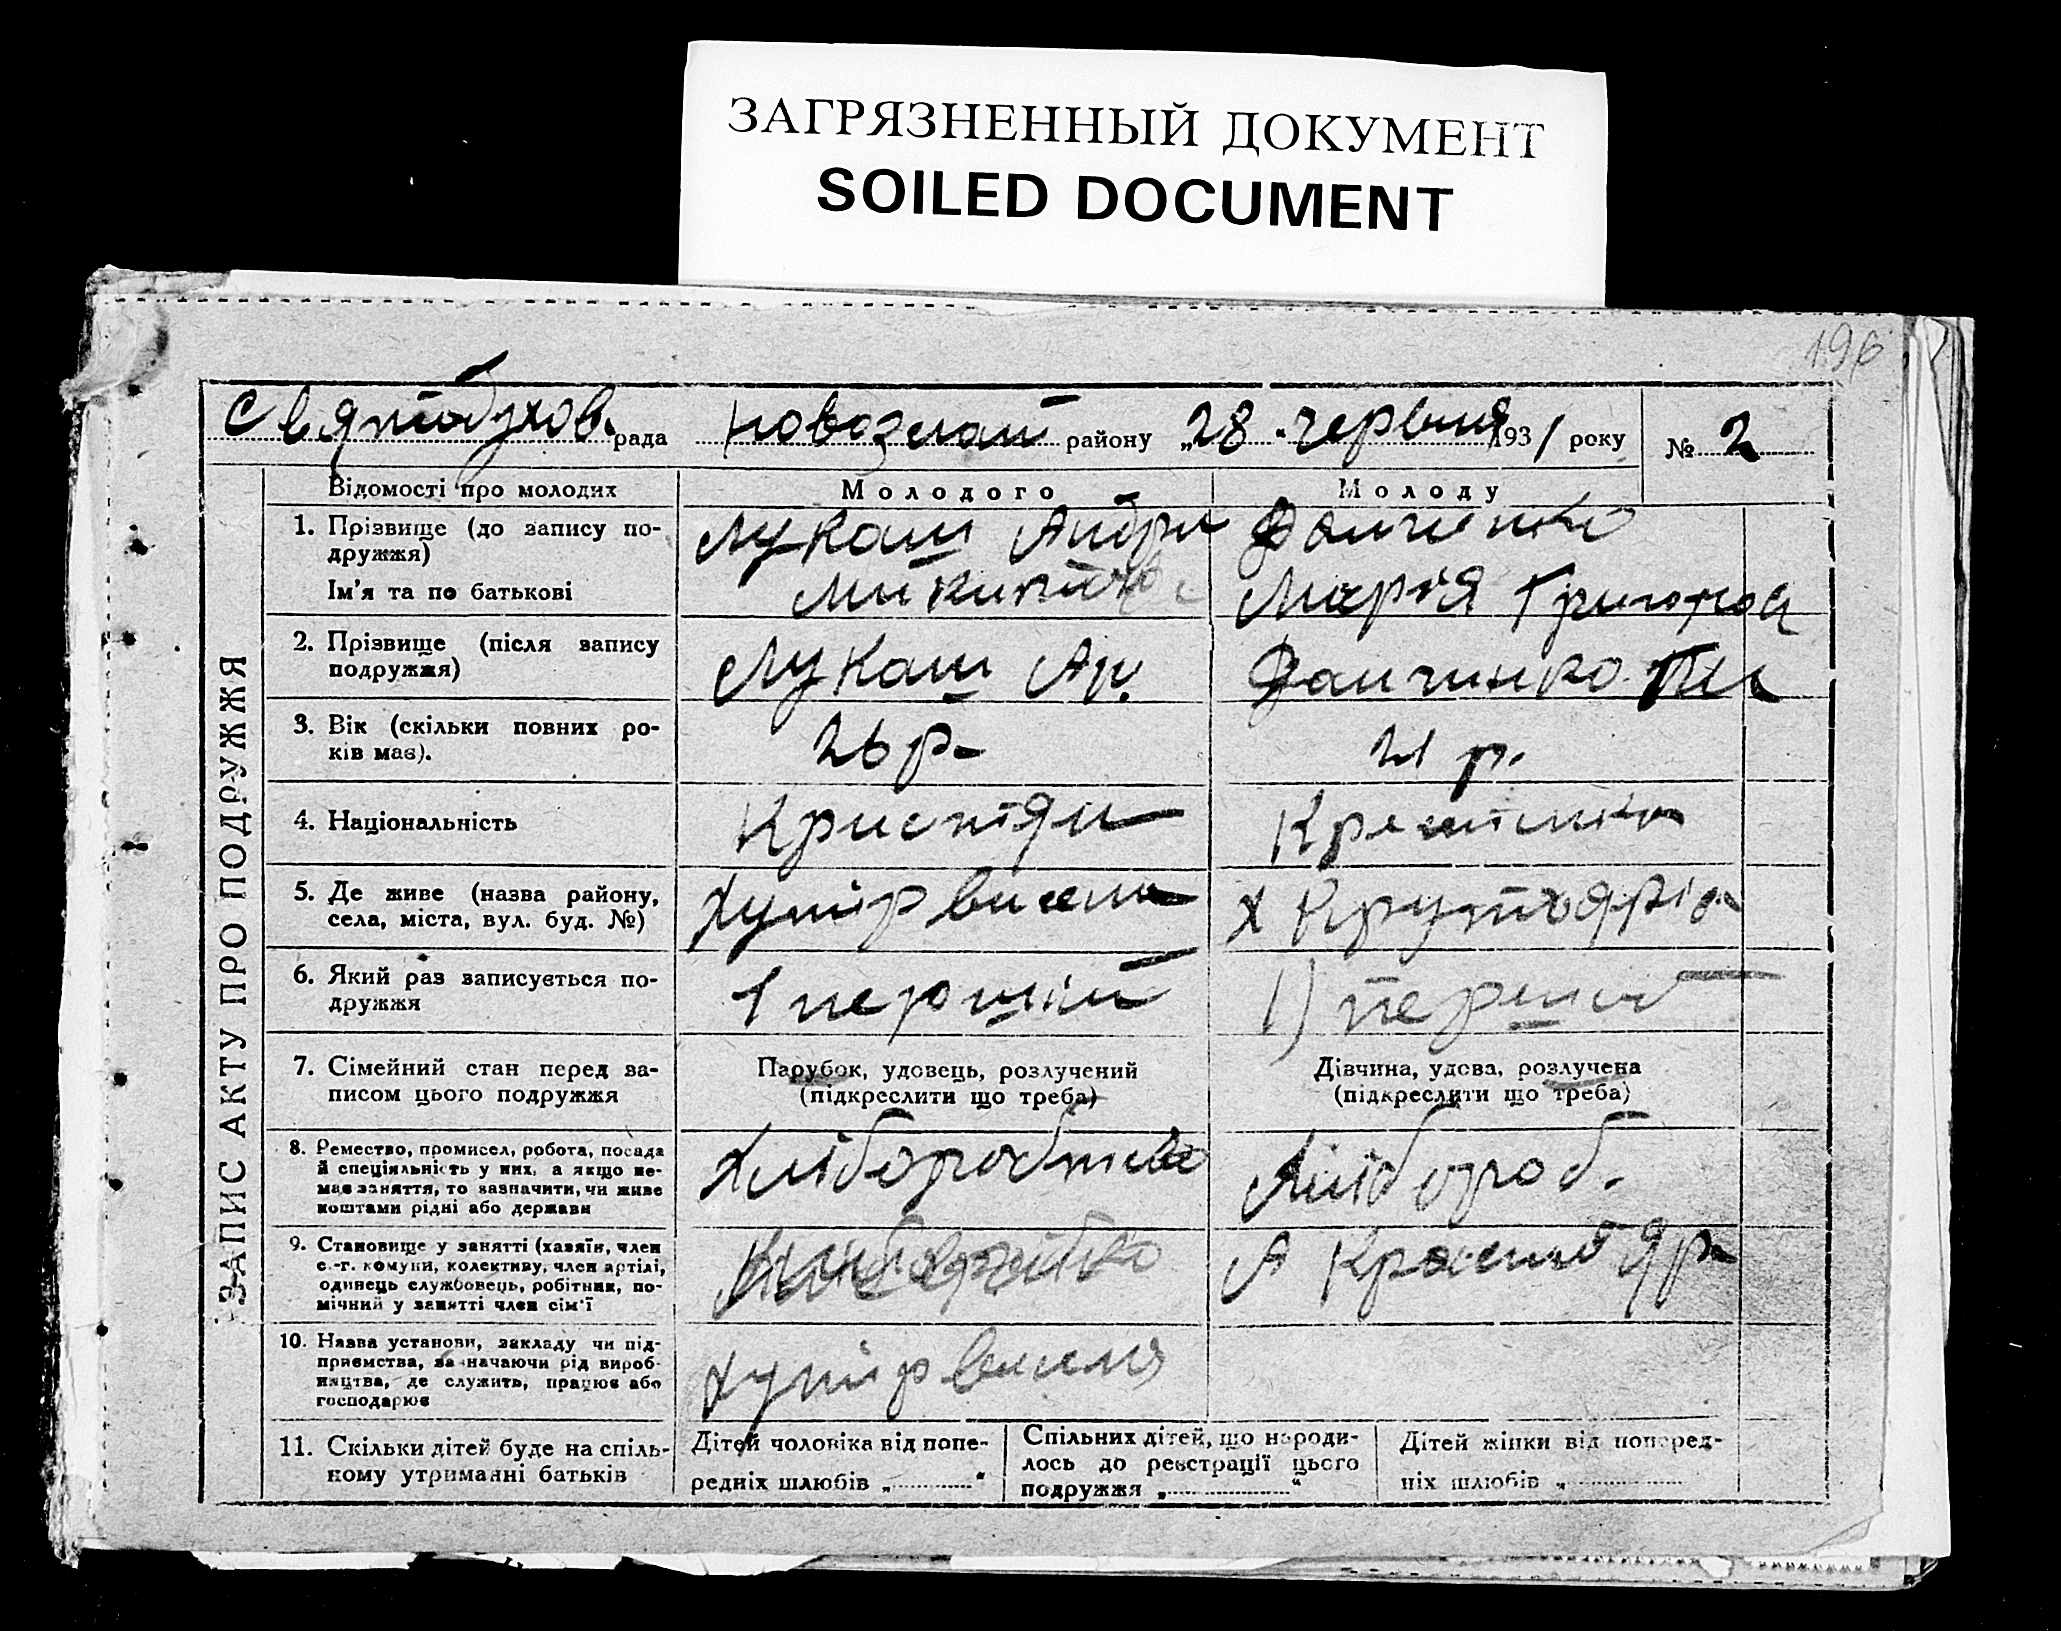 ЗАГРЯЗНЕННЫЙ ДОКУМЕНТ
SOILED DOCUMENT
196
рада району „28 червня 1931 року № 2
ЗАПИС АКТУ ПРО ПОДРУЖЖЯ
Відомості про молодих Молодого Молоду
1. Прізвище (до запису по-
дружжя)
Ім'я та по батькові
Лукаш Андри
Марія Григоров
2. Прізвище (після запису
подружжя)
Лукаш Ан.
3. Вік (скільки повних ро-
ків має).
26 р. 21 р.
4. Національність
5. Де живе (назва району,
села, міста, вул. буд. №)
Хутір
6. Який раз записується по-
дружжя
1 перший 1) перший
7. Сімейний стан перед за-
писом цього подружжя
Парубок, удовець, розлучений
(підкреслити що треба)
Дівчина, удова, розлучена
(підкреслити що треба)
8. Ремество, промисел, робота, посада
й спеціяльність у них, а якщо не-
має заняття, то зазначити, чи живе
коштами рідні або держави
Хліборобство Хлібороб.
9. Становище у занятті (хазяїн, член
с.-г. комуни, колективу, член артілі,
одинець службовець, робітник, по-
мічний у занятті член сім'ї
10. Назва установи, закладу чи під-
приємства, зазначаючи рід вироб-
ництва, де служить, працює або
господарює
Хутір
11. Скільки дітей буде на спіль-
ному утриманні батьків
Дітей чоловіка від попе-
редніх шлюбів „ “
Спільних дітей, що народи-
лось до реєстрації цього
подружжя „ “
Дітей жінки від поперед-
ніх шлюбів „